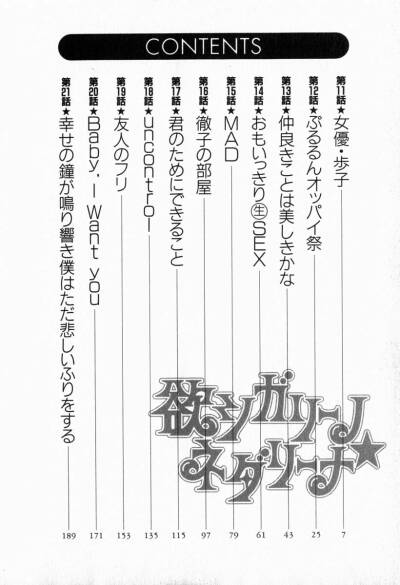 CONTENTS
第11話★女優・歩子 7
第12話★ぷるるんオッパイ祭 25
第13話★仲良きことは美しきかな 43
第14話★おもいっきり㊓SEX 61
第15話★MAD 79
第16話★徹子の部屋 97
第17話★君のためにできること 115
第18話★uncontrol 135
第19話★友人のフリ 153
第20話★Baby, I Want you 171
第21話★幸せの鐘が鳴り響き僕はただ悲しいふりをする 189
欲シガリーノ
ネダリーナ★